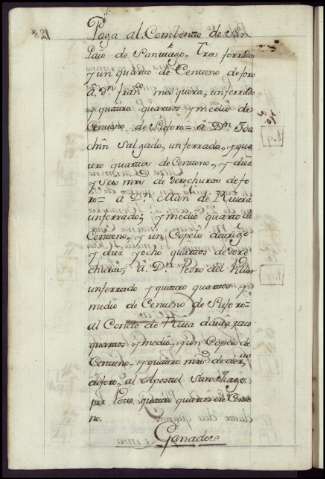 Paga al Combento de San
Paio de Santiago, Tres ferrados
y un quarto de Centeno de foro
a Dn Fran.co mosquera, un ferrado
y quatro quartos y medio de
Centeno, de Su foro = a Dn Joa
chin Salgado, un ferrado, y qua
tro quartos de Centeno, y diez
y Seis mrs de derechuras de fo
ro = a Dn de Riuera
un ferrado, y medio quarto de
Centeno, y un Copelo de trigo
y diez y ocho quartos de dere
churas, a Dn Pedro del Villar
un ferrado y quatro quartos y
medio de Centeno de Su foro =
al Conde de
quartos y medio, y un Copelo de
Centeno, y quatro mrs de
de foro, al Apostol Santiago
por Voto, quatro quartos de Cente
no.
Ganados